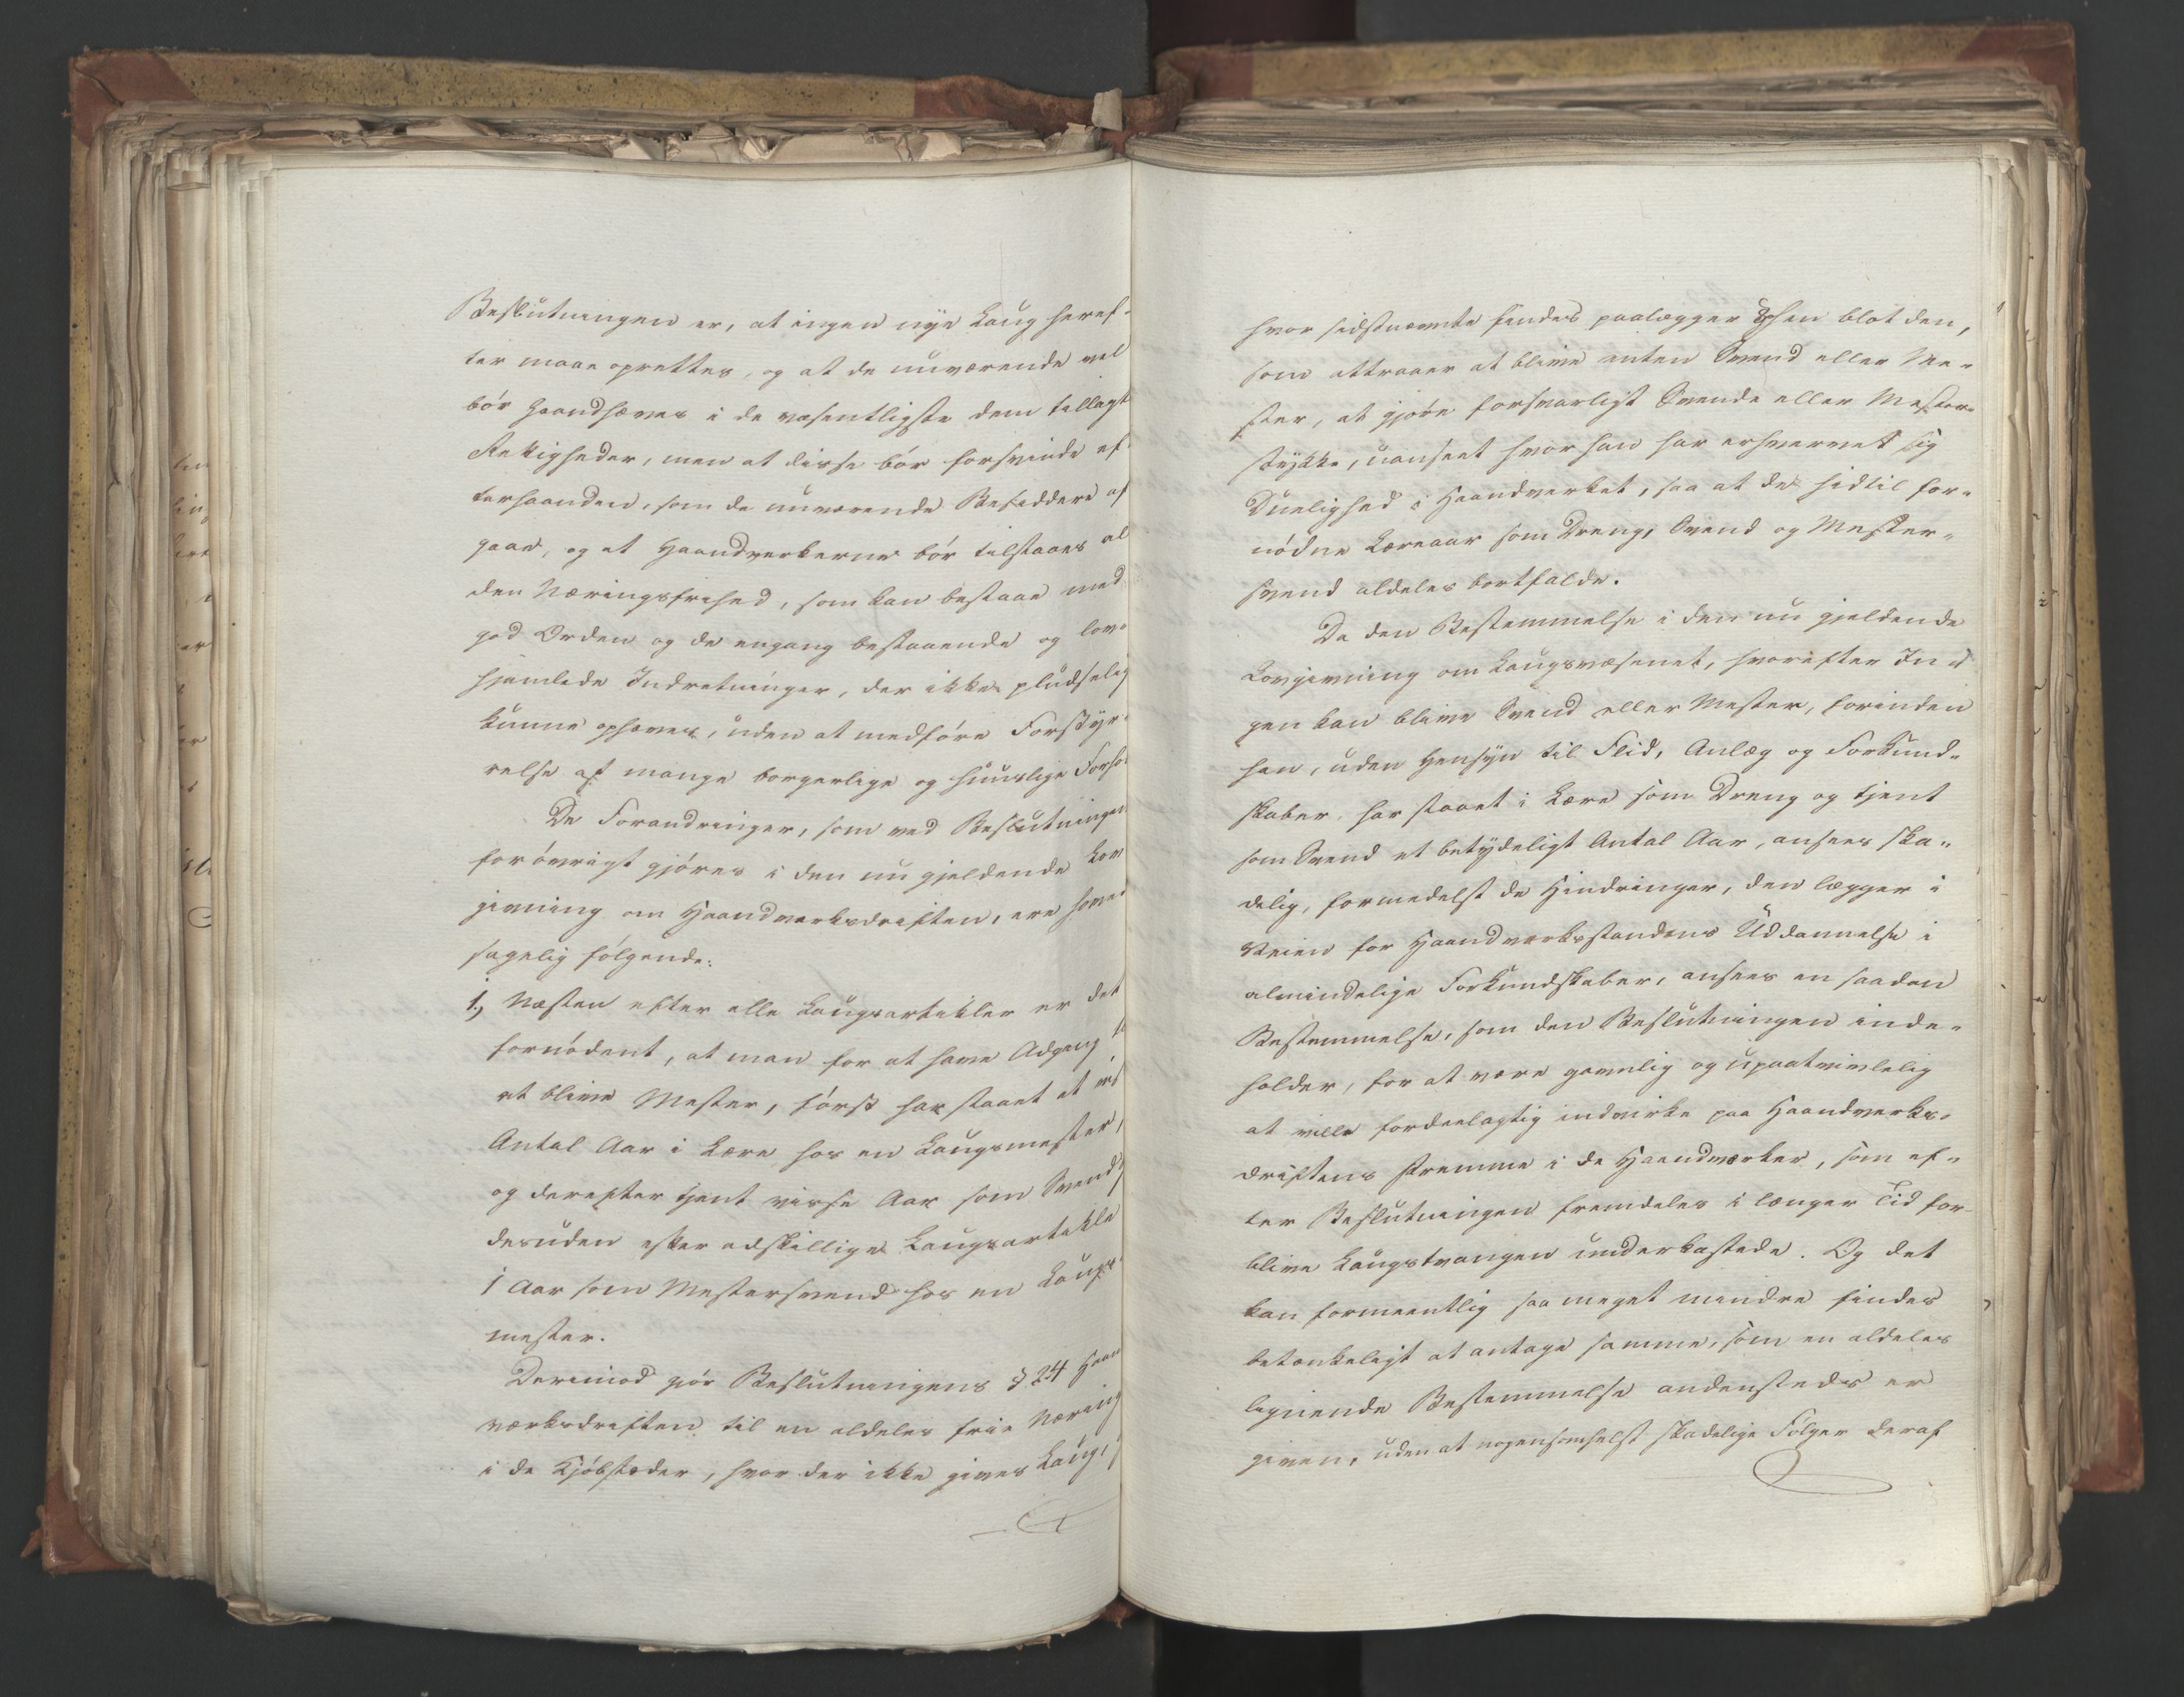 Beslutningen er, at ingen nye Laug heref-
ter maae oprettes, og at de nuværende vel
bör Haandhæves i de væsentligste dem tillagte
Rettigheder, men at disse bör forsvinde ef-
terhaanden, som de nuværende Besiddere af
gaae, og at Haandverkerne bör tilstaaes al
den Næringsfrihed, som kan bestaae med
god Orden og de engang bestaaende og lov-
hjemlede Indretninger, der ikke pludselig
kunne ophæves, uden at medföre Forstyr-
relse af mange borgerlige og huuslige Forho-
De Forandringer, som ved Beslutningen
forövrigt gjöres i den nu gjeldende Lov
givning om Haandverksdriften, ere hoved
sagelig fölgende:
1, Næsten efter alle Laugsartikler er det
fornödent, at man for at have Adgang t
at blive Mester, först har staaet et vis
Antal Aar i Lære hos en Laugsmester,
og derefter tjent visse Aar som Svend,
desuden efter adskillige Laugsartikle
1 Aar som Mestersvend hos en Laugs-
mester.
Derimod gjör Beslutningens § 24 Haan
værksdriften til en aldeles frie Næring
i de Kjöbstæder, hvor der ikke gives Laug,
hvor sidstnævnte findes paalægger § hen blot den,
som attraaer at blive enten Svend eller Me-
ster, at gjöre forsvarligt Svende eller Mester-
stykke, uanseet hvor han har erhvervet sig
Duelighed i Haandverket, saa at de hidtil for-
nödne Læreaar som Dreng, Svend og Mester-
svend aldeles bortfalde.
Da den Bestemmelse i den nu gjeldende
Lovgivning om Laugsvæsenet, hvorefter In-
gen kan blive Svend eller Mester, forinden
han, uden Hensyn til Flid, Anlæg og Forkund-
skaber, har staaet i Lære som Dreng og tjent
som Svend et betydeligt Antal Aar, ansees ska-
delig, formedelst de Hindringer, den lægger i
Veien for Haandverksstandens Uddannelse i
almindelige Forkundskaber, ansees en saadan
Bestemmelse, som den Beslutningen inde-
holder, for at være gavnlig og upaatvivlelig
at ville fordeelagtig indvirke paa Haandverks-
driftens Fremme i de Haandværker, som ef-
ter Beslutningen fremdeles i længer Tid for-
blive Laugstvangen underkastede. Og det
kan formeentlig saa meget mindre findes
betænkeligt at antage samme, som en aldeles
lignende Bestemmelse andensteds er
given, uden at nogensomhelst skadelige Fölger deraf